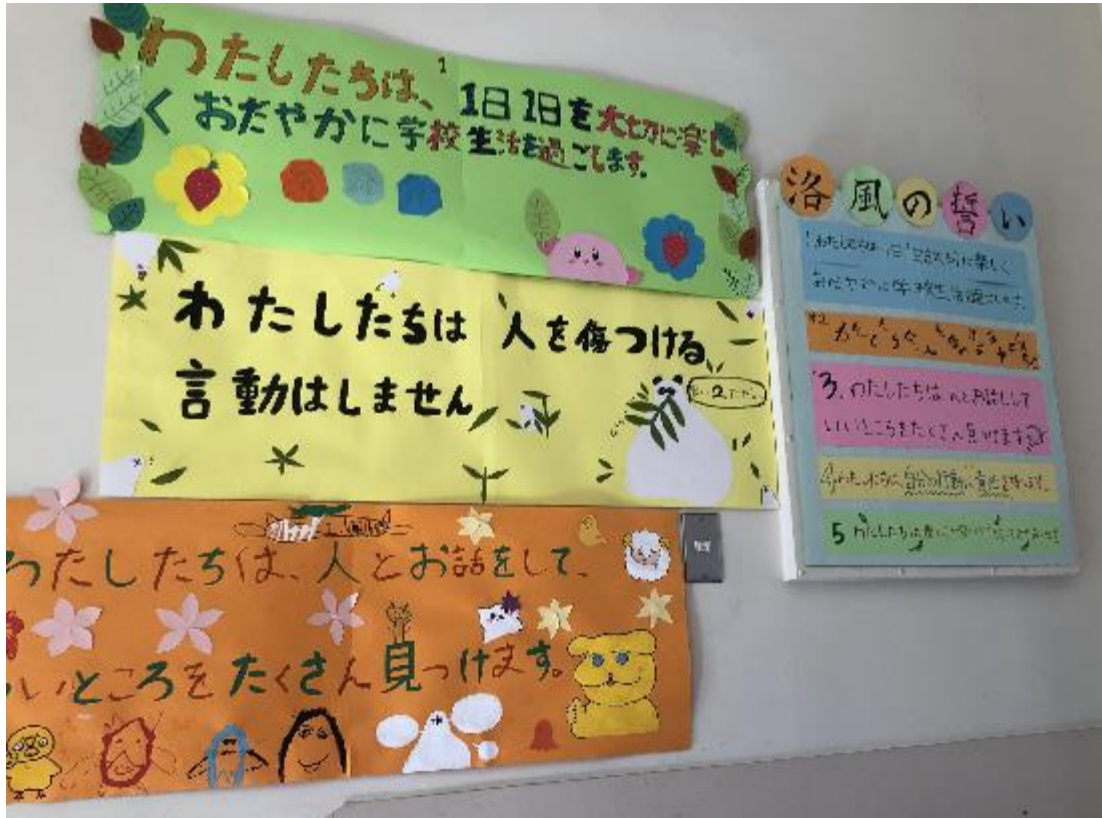 1
わたしたちは、1日1日を大切に楽し
くおだやかに学校生活を過ごします。
わたしたちは 人を傷つける
言動はしません
わたしたちは、人とお話をして、
いいところをたくさん見つけます。
洛風の誓い
わたしたちは 1日1日を大切に楽しく
おだやかに学校生活を過ごします。
3、わたしたちは人とお話しして
いいところをたくさん見つけます
4、わたしたちは、自分の行動に責任を持ちます。
5 わたしたちは